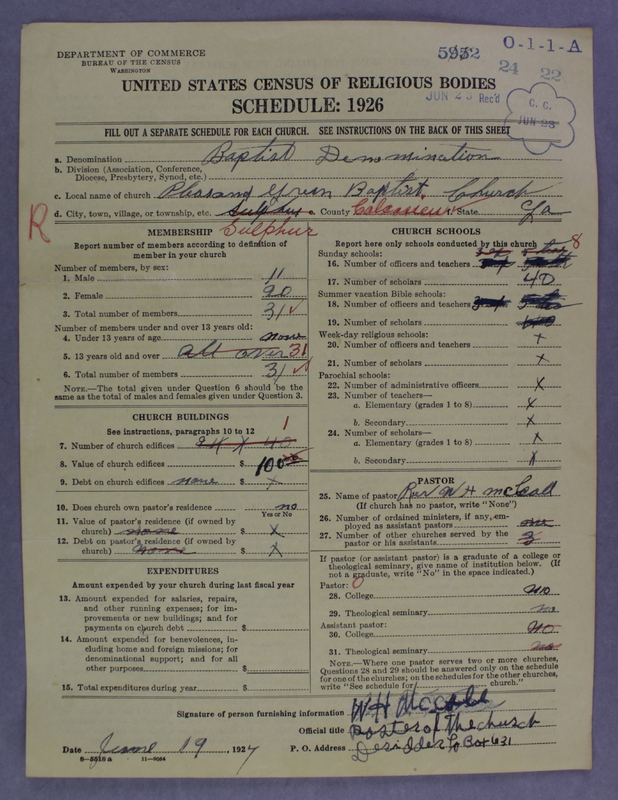 DEPARTMENT OF COMMERCE
BUREAU OF THE CENSUS
WASHINGTON
5932
O-1-1-A
24 22
UNITED STATES CENSUS OF RELIGIOUS BODIES
SCHEDULE: 1926
JUN 23 Rec'd
C. C.
JUN 23
FILL OUT A SEPARATE SCHEDULE FOR EACH CHURCH. SEE INSTRUCTIONS ON THE BACK OF THIS SHEET
a. Denomination Baptist Denomination
b. Division (Association, Conference, Diocese, Presbytery, Synod, etc.)
c. Local name of church Pleasang Green Baptist Church
d. City, town, village, or township, etc. Sulphur County Calcasieu State La
R
Sulphur
MEMBERSHIP
Report number of members according to definition of member in your church
Number of members, by sex:
1. Male 11
2. Female 20
3. Total number of members 31 ✓
Number of members under and over 13 years old:
4. Under 13 years of age none
5. 13 years old and over all over 31
6. Total number of members 31 ✓
NOTE.—The total given under Question 6 should be the same as the total of males and females given under Question 3.
CHURCH BUILDINGS
See instructions, paragraphs 10 to 12
7. Number of church edifices 24 X 40 1
8. Value of church edifices $ 100
9. Debt on church edifices none $ X
10. Does church own pastor's residence no
Yes or No
11. Value of pastor's residence (if owned by church) none $ X
12. Debt on pastor's residence (if owned by church) none $ X
EXPENDITURES
Amount expended by your church during last fiscal year
13. Amount expended for salaries, repairs, and other running expenses; for improvements or new buildings; and for payments on church debt $
14. Amount expended for benevolences, including home and foreign missions; for denominational support; and for all other purposes $
15. Total expenditures during year $
CHURCH SCHOOLS
Report here only schools conducted by this church
8
Sunday schools:
16. Number of officers and teachers
17. Number of scholars 40
Summer vacation Bible schools:
18. Number of officers and teachers
19. Number of scholars
Week-day religious schools:
20. Number of officers and teachers X
21. Number of scholars X
Parochial schools:
22. Number of administrative officers X
23. Number of teachers—
a. Elementary (grades 1 to 8) X
b. Secondary X
24. Number of scholars—
a. Elementary (grades 1 to 8) X
b. Secondary X
PASTOR
25. Name of pastor Rev W H McCall
(If church has no pastor, write "None")
26. Number of ordained ministers, if any, employed as assistant pastors
27. Number of other churches served by the pastor or his assistants
If pastor (or assistant pastor) is a graduate of a college or theological seminary, give name of institution below. (If not a graduate, write "No" in the space indicated.)
Pastor: 0
28. College no
29. Theological seminary no
Assistant pastor:
30. College no
31. Theological seminary no
NOTE.—Where one pastor serves two or more churches, Questions 28 and 29 should be answered only on the schedule for one of the churches; on the schedules for the other churches, write "See schedule for church."
Signature of person furnishing information W H McCall
Official title Paster of The church
Date June 19, 1927
P. O. Address Deridder La Box 631
8—5516 a 11—9054